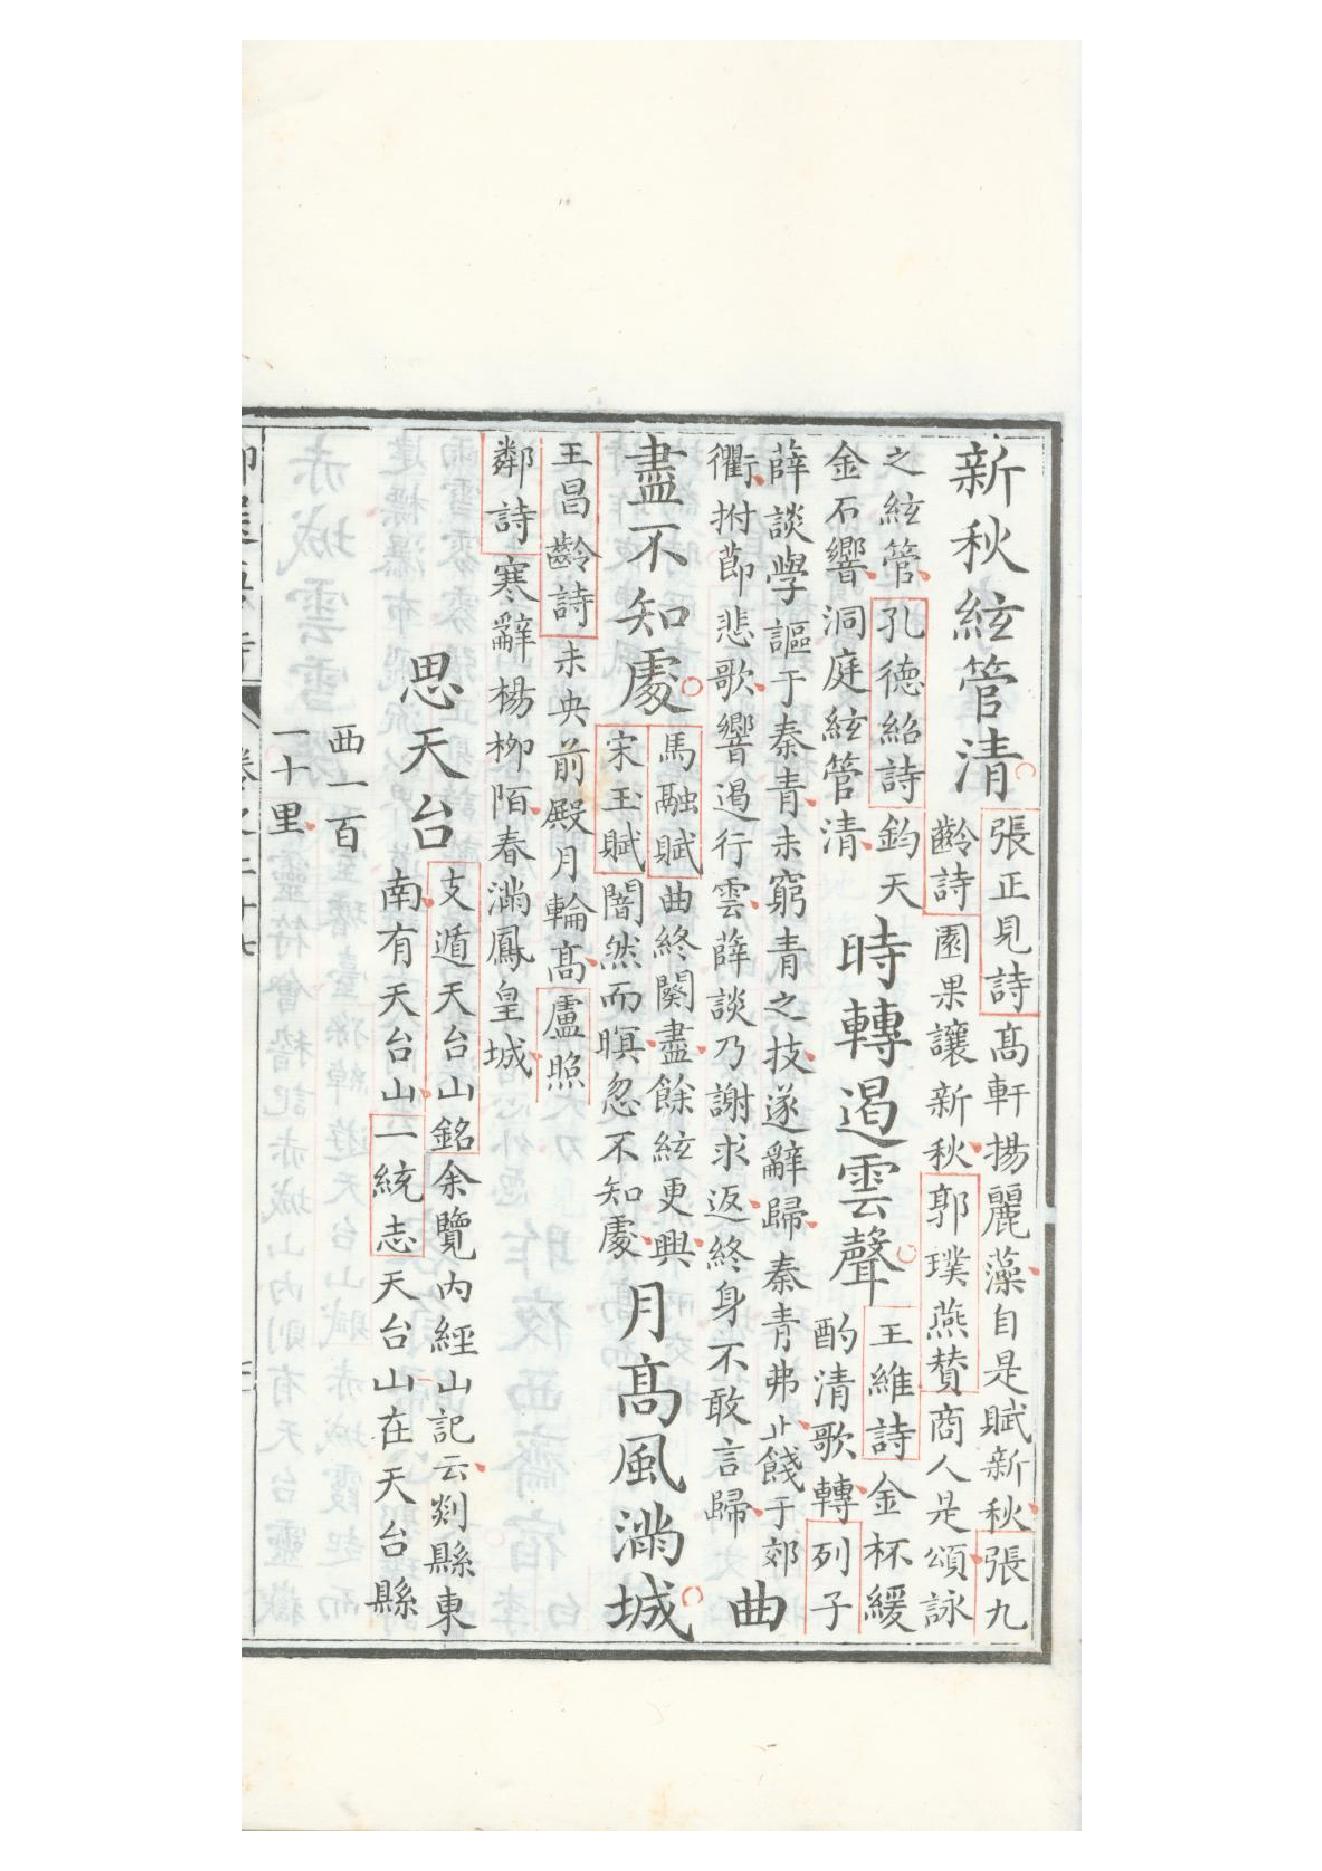 新秋絃管清
張正見詩髙軒揚麗藻自是賦新秋張九
齡詩園果讓新秋郭璞燕賛商人是頌詠
之絃管孔徳紹詩鈞天
金石響洞庭絃管清
時轉遏雲聲
王維詩金杯緩
酌清歌轉列子
薛談學謳于秦青未窮青之技遂辭歸秦青弗止餞于郊
衢拊節悲歌響遏行雲薛談乃謝求返終身不敢言歸
曲
盡不知處
馬融賦曲終闋盡餘絃更興
宋玉賦闇然而暝忽不知處
月髙風滿城
王昌齡詩未央前殿月輪髙盧照
鄰詩寒辭楊柳陌春滿鳳皇城
思天台
支遁天台山銘余覽内經山記云剡縣東
南有天台山一統志天台山在天台縣
西一百
一十里